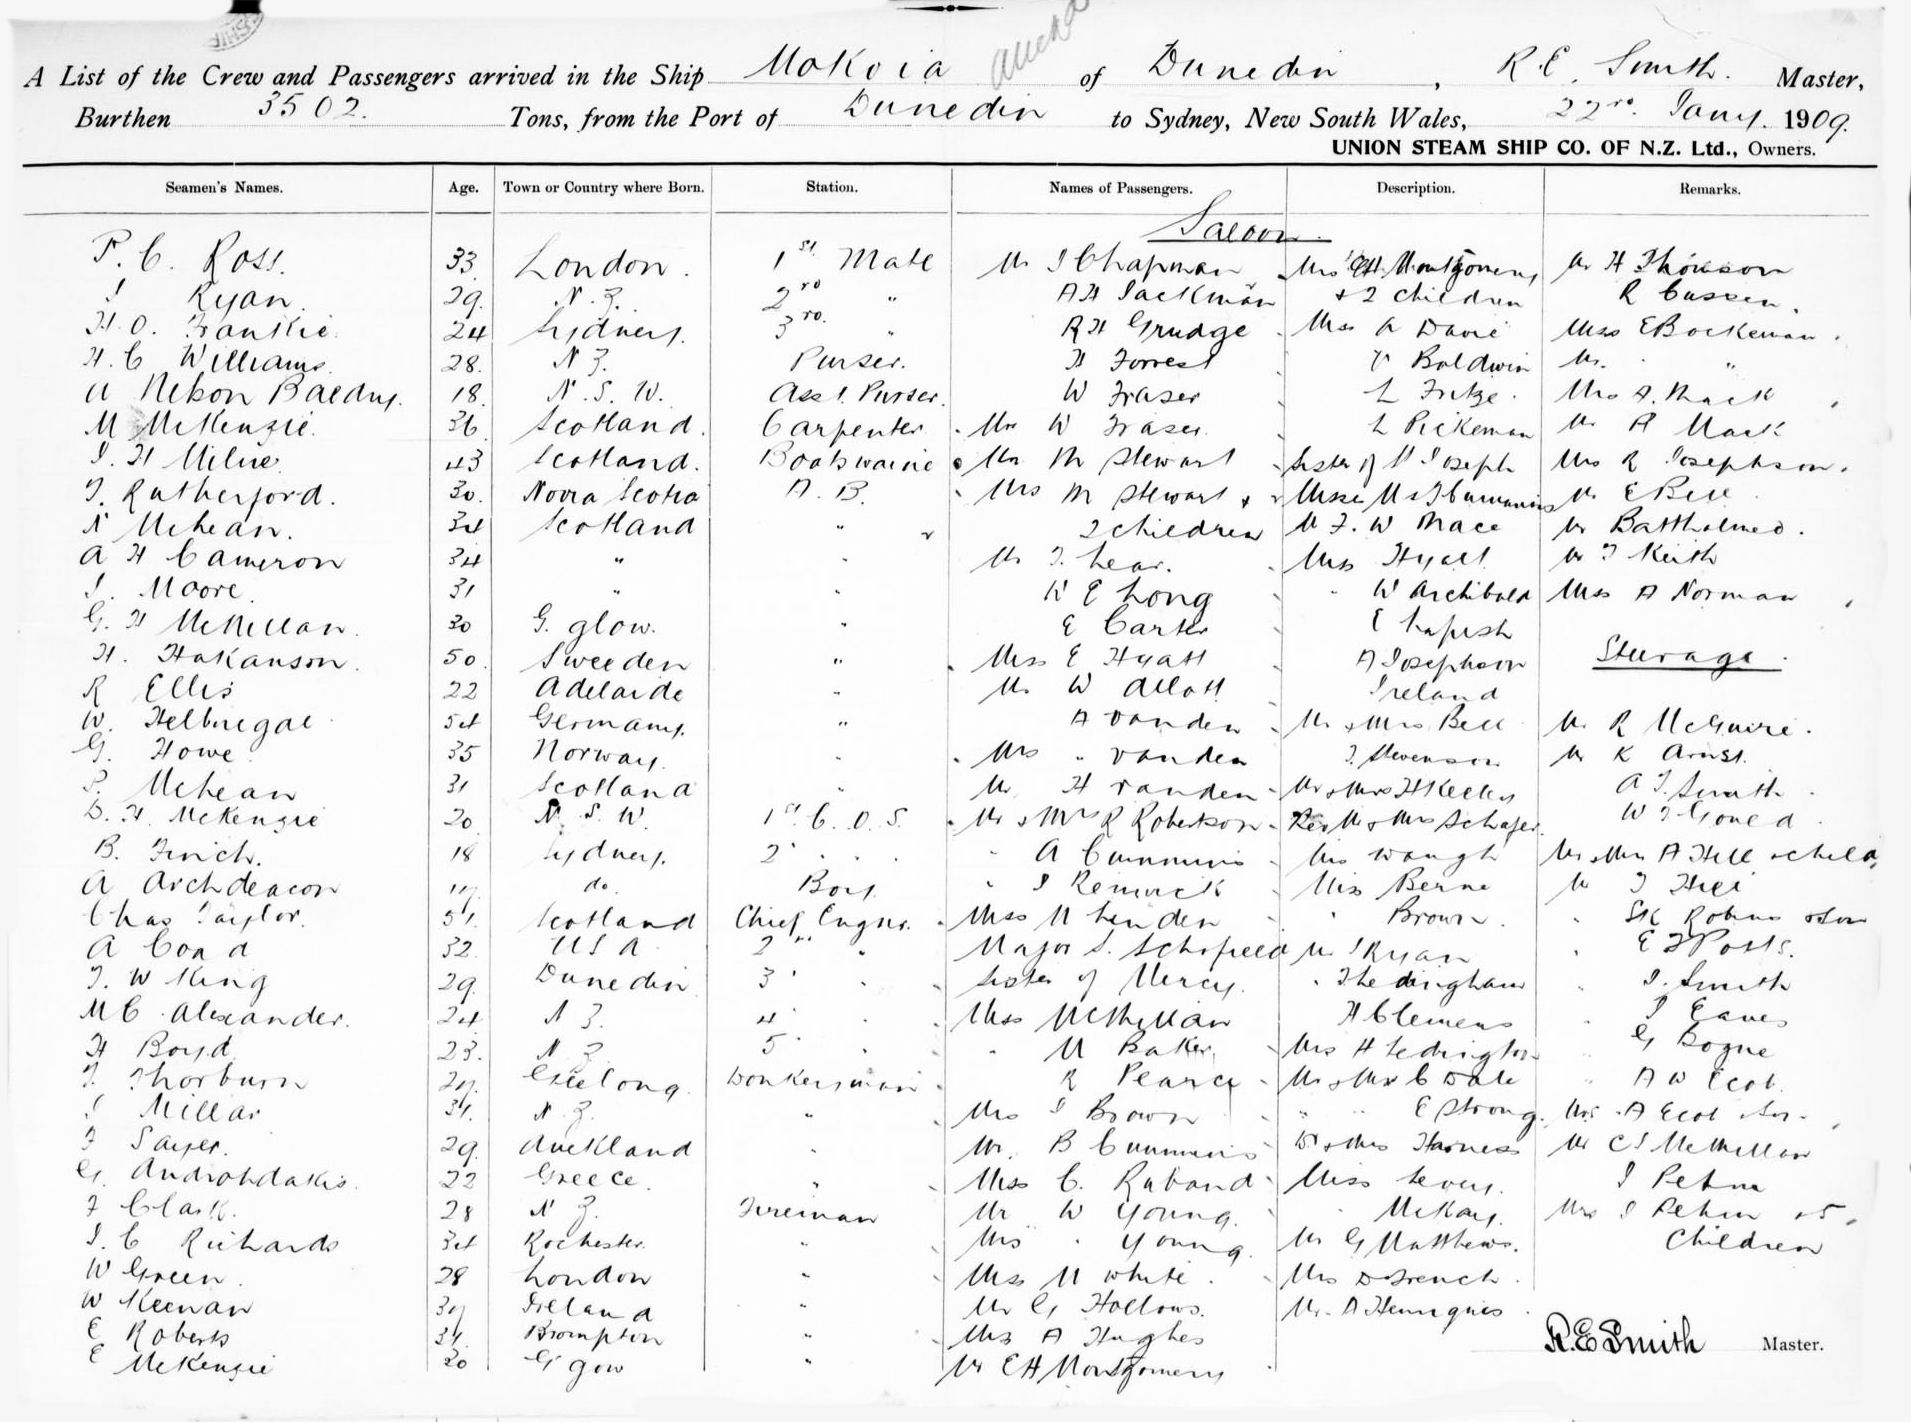 A List of the Crew and Passengers arrived in the Ship Mokoia of Dunedin, R. E. Smith. Master,
Burthen 3502. Tons, from the Port of Dunedin to Sydney, New South Wales, 22nd. Jany. 1909.
UNION STEAM SHIP CO. OF N.Z. Ltd., Owners.
Seamen's Names. Age. Town or Country where Born. Station. Names of Passengers. Description. Remarks.
Saloon.
P. C. Ross. 33 London. 1st. Mate Mr J Chapman Mrs EH Montgomery Mr H Thomson
J Ryan. 29. N. Z. 2nd " A H Jackman + 2 children R Cussen.
H. O. Frankie. 24 Sydney. 3rd. " R H Grudge Miss A Davie Miss E Bockeman.
H. C Williams. 28. N Z. Purser. H Forrest V Baldwin Mr. "
Nelson 18. N. S. W. Asst. Purser. W Fraser L Fritze. Mrs A. Mack
M McKenzie. 36 Scotland. Carpenter. Mrs W Fraser. L Pickeman Mr A Mack
J. H Milne. 43 Scotland. Boatswain Mr M Stewart Sister M Joseph Mrs R Josephson.
J. Rutherford. 30. Nova Scotia A. B. Mrs M Stewart + Misses Cummins Mr E Bell
N McLean. 34 Scotland " 2 children M F. W Mace Mr Bartholmeo.
A H Cameron 34 " " Mr J. Lear. Miss Hyatt Mr J Keith
J. Moore. 31 " " W E Long W Archibald Miss A Norman
G. H McMillan. 30 G. glow. " E Carter E
H. Hakanson. 50. Sweeden " Miss E Hyatt A Josephson Steerage.
R Ellis 22 Adelaide " Mr W Allott Ireland
W. 54 Germany. " A Vanden Mr + Mrs Bell Mr R McGuire.
G. Howe 35 Norway. " Mrs " Vanden J. Stevenson Mr K Arnst.
P. McLean 31 Scotland " Mr H Vanden Mr + Mrs H A J. Smith
D. H. McKenzie 20. N. S. W. 1st C. O. S. Mr + Mrs R Robertson Rev Mr + Mrs Schafer. W J Gould
B. Finch. 18 Sydney. 2 " " " " A Cummins Mrs Waugh Mr + Mrs A Hill + child
A Archdeacon 17. do. Boy. " J Renwick Miss Berne Mr
Chas Taylor. 51. Scotland Chief Engnr. Miss M Linden " Brown. " Robins + Son
A Coad 32. U S A 2nd " Major S. Schofield Mr J Ryan " E J Potts.
J. W King 29. Dunedin 3 " " Sister of Mercy. " Thedingham " J. Smith
M C Alexander. 24. N Z. 4 " " Miss McMillan H Clemens " J Eaves
H Boyd 23. N Z. 5 " " " M Baker. Mrs H Ledington " G Bogue
J. Thorburn 27. Geelong. Donkeyman R Pearce Mr + Mrs C Dale " A W Ecob.
J Millar 37. N Z. " Mrs J Brown " " E Strong. Mrs A Ecob
J Sayer. 29. Auckland " Mr. B Cummins Dr + Mrs Harness Mr C S McMillan
G. Androhdakis. 22 Greece. " Miss C. Raband Miss Levey. J Petrie
J Clark. 28 N Z. Fireman Mr W Young. " McKay. Mrs J Petrie + 5
J. C Richards 34 Rochester. " Mrs " Young. Mr G Matthews. Children
W Green. 28 London " Miss M White. Mrs D French.
W Keenan 37 Ireland " Mr G Hollows. Mr. A Henriques
E Roberts 37. Brompton " Mrs A Hughes R. E Smith Master.
E McKenzie 30 G gow " Mr E H Montgomery